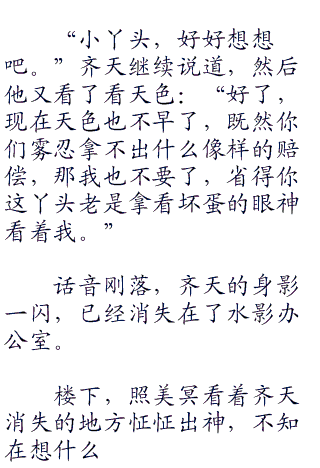 “小丫头，好好想想
吧。”齐天继续说道，然后
他又看了看天色：“好了，
现在天色也不早了，既然你
们雾忍拿不出什么像样的赔
偿，那我也不要了，省得你
这丫头老是拿看坏蛋的眼神
看着我。”
话音刚落，齐天的身影
一闪，已经消失在了水影办
公室。
楼下，照美冥看着齐天
消失的地方怔怔出神，不知
在想什么